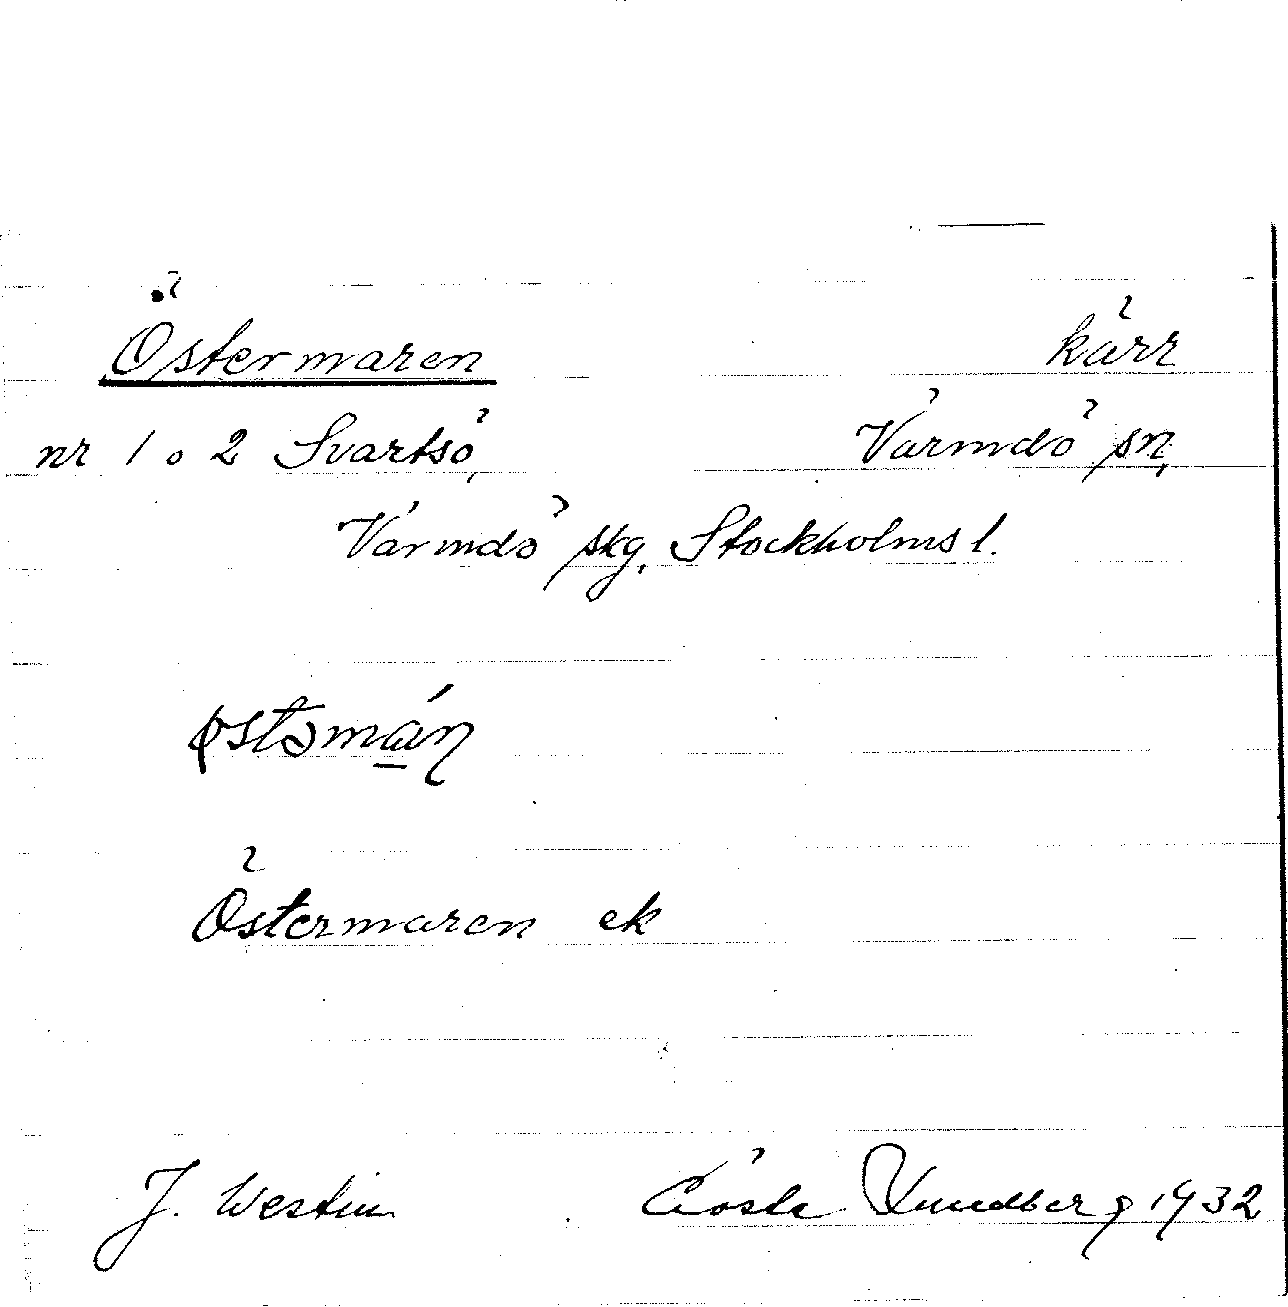 Östermaren kärr
nr 1 o 2 Svartsö, Värmdö sn,
Värmdö skg, Stockholms l.
østəmά̲ɳ
Östermaren ek
J. Westin Gösta Lundberg 1932